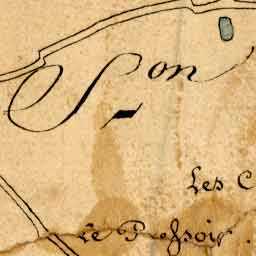 Son
Les C
Le Pressoir.